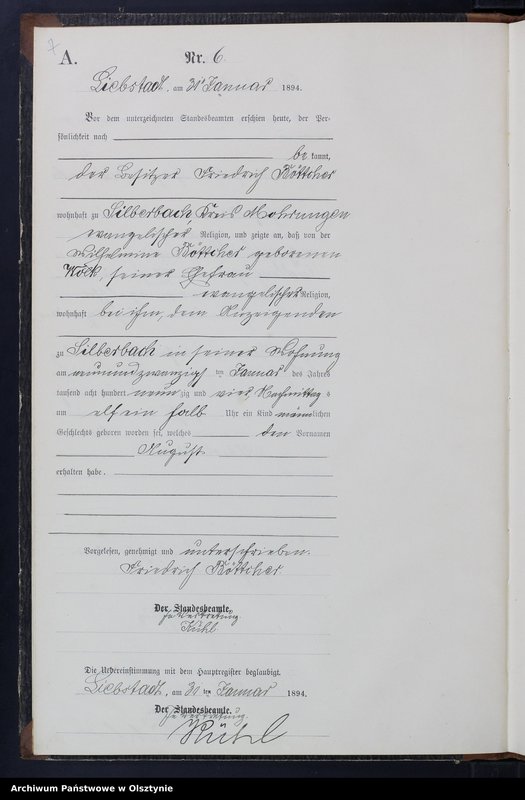 A.
Nr. 6.
Liebstadt, am 31ten Januar 1894.
Vor dem unterzeichneten Standesbeamten erschien heute, der Per-
sönlichkeit nach
be kannt,
der Besitzer Friedrich Böttcher
wohnhaft zu Silberbach, Kreis Mohrungen
evangelischer Religion, und zeigte an, daß von der
Wilhelmine Böttcher geborenen
Köck, seiner Ehefrau
evangelischer Religion,
wohnhaft bei ihm, dem Anzeigenden
zu Silberbach in seiner Wohnung
am neunundzwanzigsten Januar des Jahres
tausend acht hundert neunzig und vier, Nachmittags
um elf ein halb Uhr ein Kind männlichen
Geschlechts geboren worden sei, welches den Vornamen
August
erhalten habe.
Vorgelesen, genehmigt und unterschrieben.
Friedrich Böttcher
Der Standesbeamte.
In Vertretung.
Kühl
Die Uebereinstimmung mit dem Hauptregister beglaubigt.
Liebstadt, am 31ten Januar 1894.
Der Standesbeamte.
In Vertretung.
Kühl
Archiwum Państwowe w Olsztynie